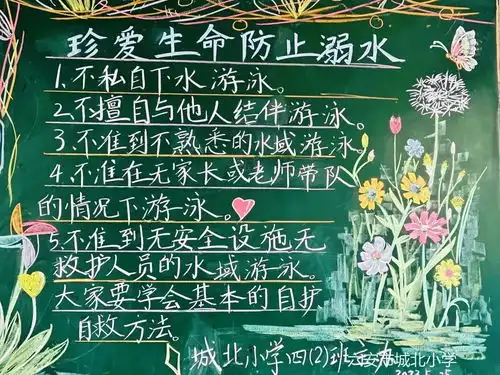 珍爱生命防止溺水
1.不私自下水游泳。
2.不擅自与他人结伴游泳。
3.不准到不熟悉的水域游泳。
4.不准在无家长或老师带队
的情况下游泳。
5.不准到无安全设施无
救护人员的水域游泳。
大家要学会基本的自护
自救方法。
城北小学四(2)班
安市城北小学